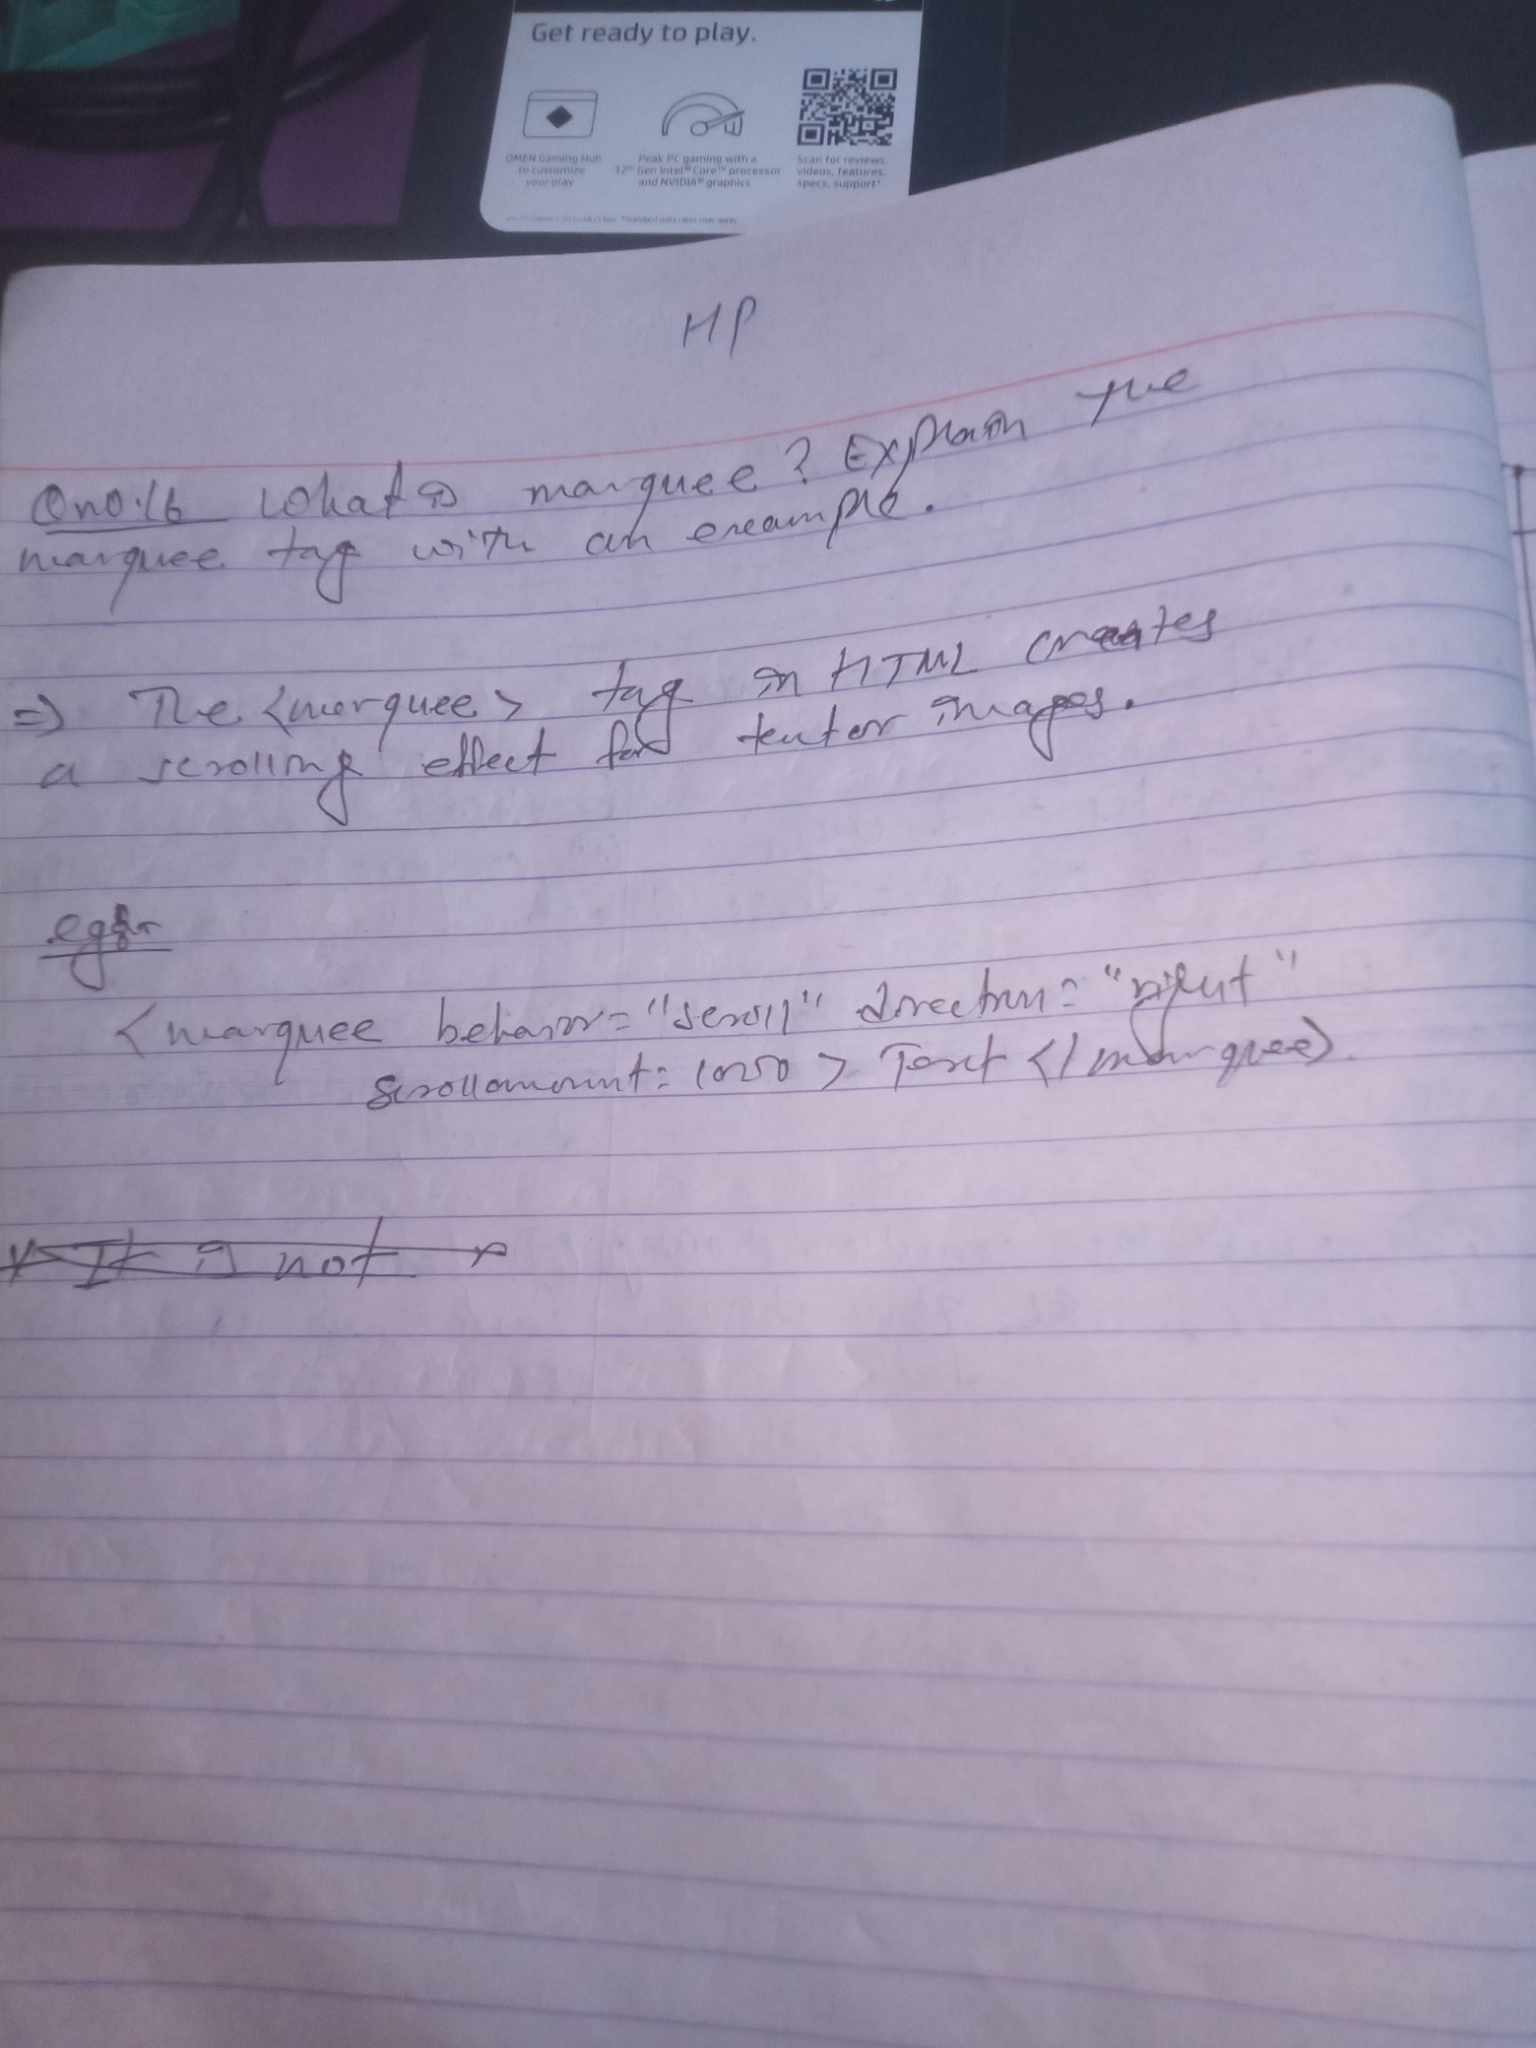 Get ready to play.
OMEN Gaming Hub to customize your play
Peak PC gaming with a 12th Gen Intel® Core™ processor and NVIDIA® graphics
Scan for reviews, videos, features, specs, support*
HP
Qno.16 What is marquee? Explain the
marquee tag with an example.
=> The <marquee> tag in HTML creates
a scrolling effect for text or images.
eg:-
<marquee behavior="scroll" direction="right"
scrollamount= > Text </marquee>.
It is not